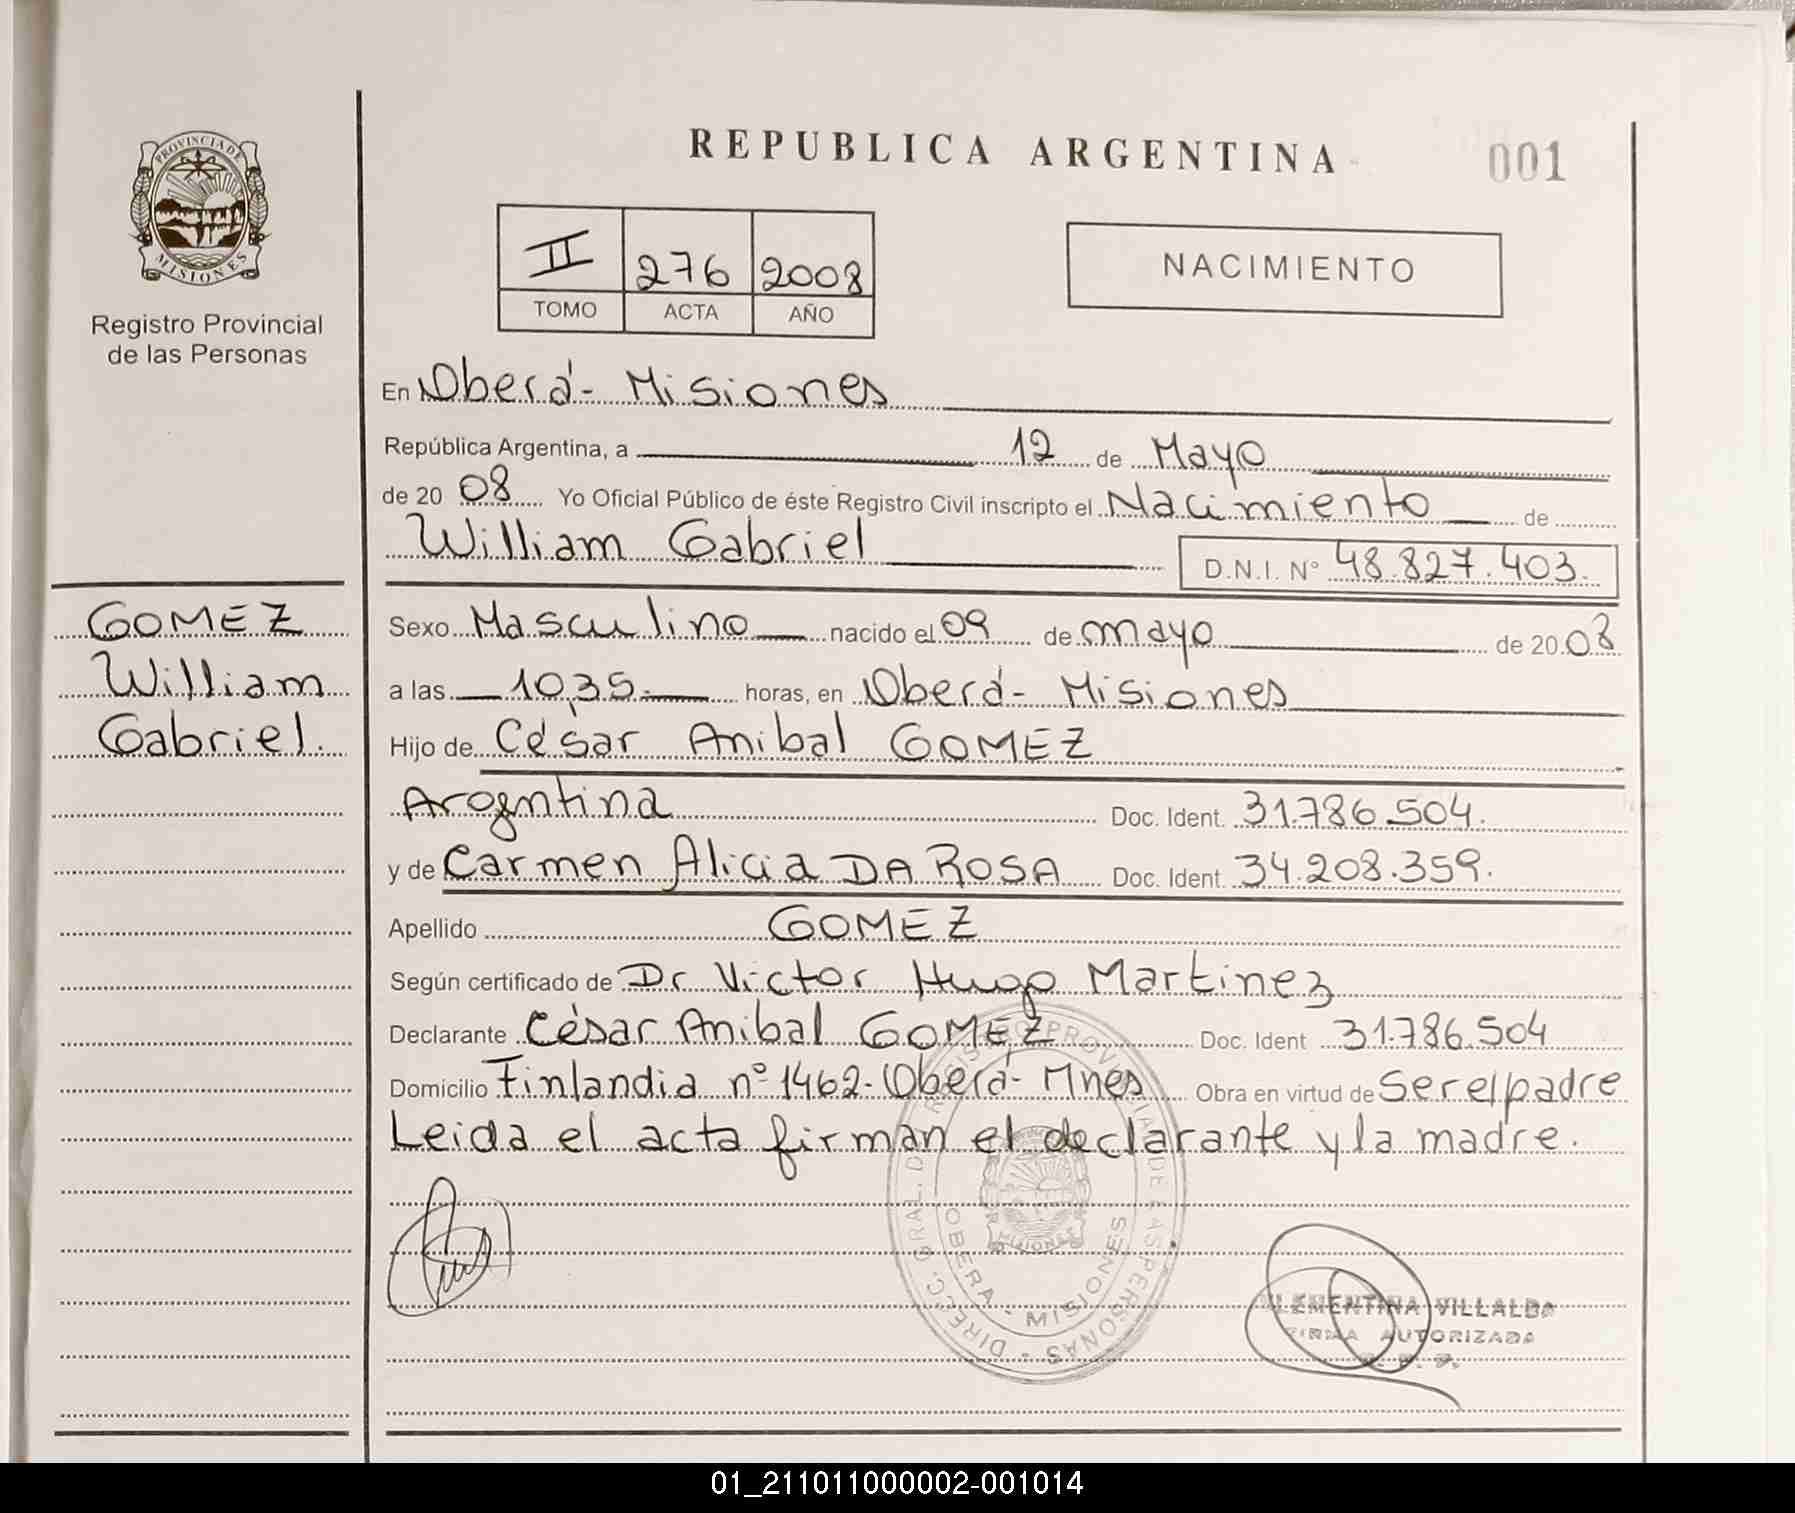 REPUBLICA ARGENTINA
001
PROVINCIA DE
MISIONES
Registro Provincial
de las Personas
II 276 2008
TOMO ACTA AÑO
NACIMIENTO
En Oberá - Misiones
República Argentina, a 12 de Mayo
de 20 08 Yo Oficial Público de éste Registro Civil inscripto el Nacimiento de
William Gabriel D.N.I. Nº 48.827.403.
GOMEZ
William
Gabriel.
Sexo Masculino nacido el 09 de mayo de 20 08
a las 10,35 horas, en Oberá - Misiones
Hijo de César Anibal GOMEZ
Argentina Doc. Ident. 31.786.504.
y de Carmen Alicia DA ROSA Doc. Ident. 34.208.359.
Apellido GOMEZ
Según certificado de Dr Victor Hugo Martinez
Declarante César Anibal GOMEZ Doc. Ident 31.786.504
Domicilio Finlandia nº 1462 - Oberá - Mnes Obra en virtud de Ser el padre
Leida el acta firman el declarante y la madre.
DIRECC. GRAL. DEL REGISTRO PROVINCIAL DE LAS PERSONAS
OBERA - MISIONES
MISIONES
CLEMENTINA VILLALBA
FIRMA AUTORIZADA
01_211011000002-001014